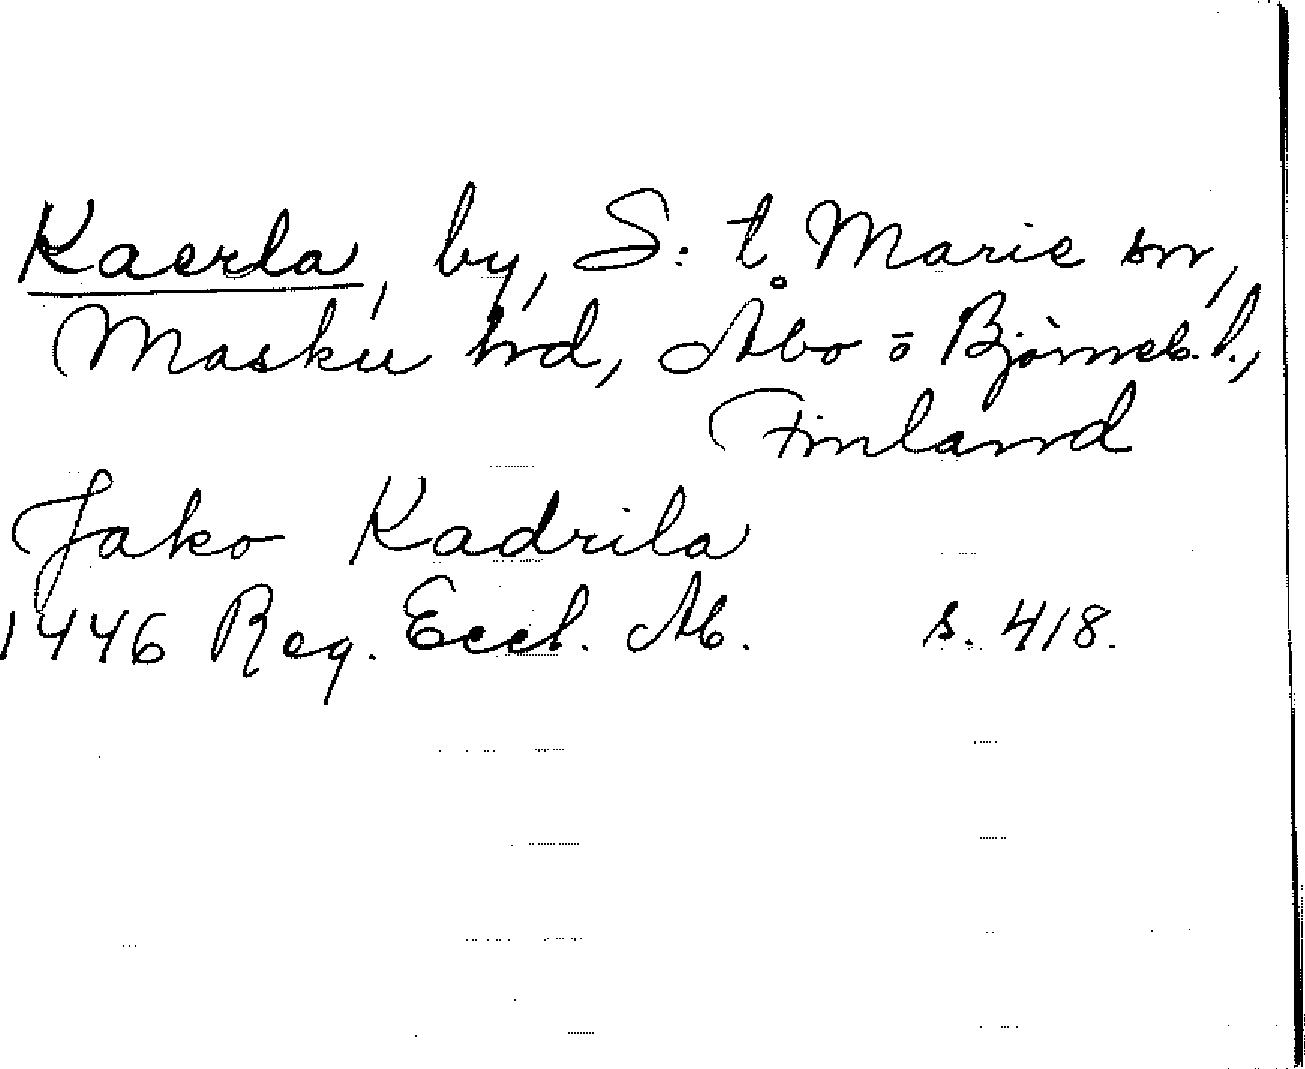 Kaerla, by, S:t Marie sn,
Masku hrd, Åbo o Björneb. l.,
Finland
Jako Kadrila
1446 Reg. Eccl. Ab. s. 418.